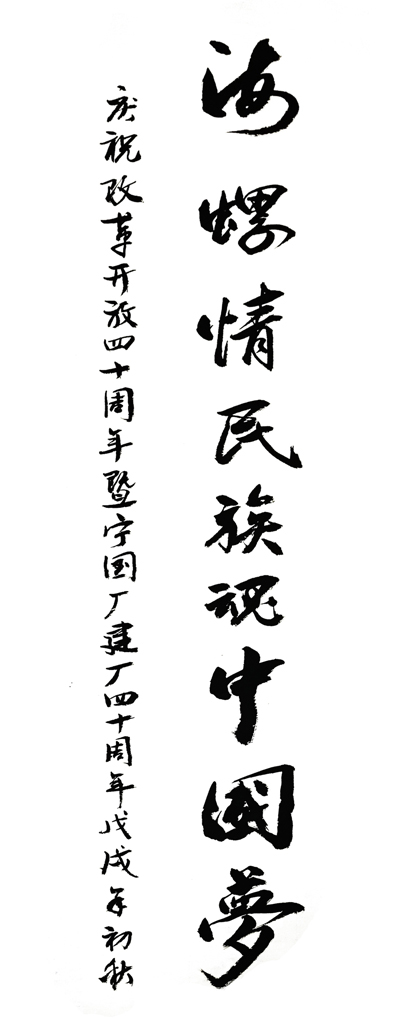 海螺情民族魂中國夢
庆祝改革开放四十周年暨宁国厂建厂四十周年戊戌年初秋